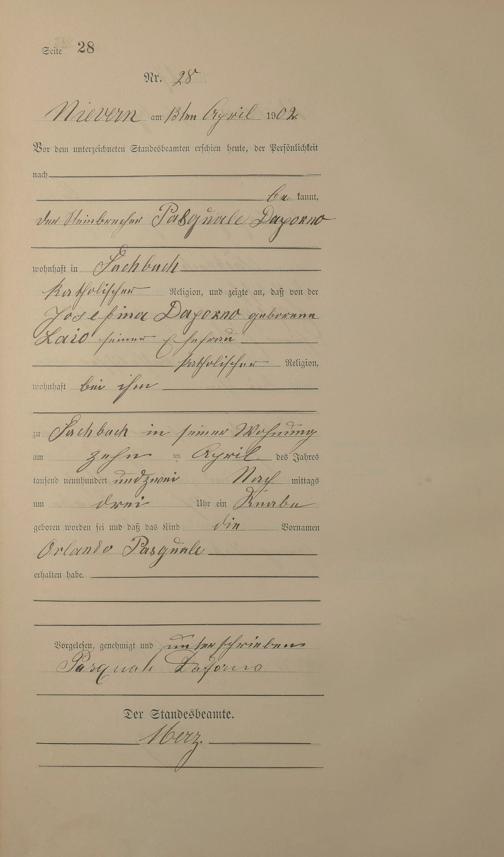 Seite 28
Nr. 28
Nievern am 13ten April 1902
Vor dem unterzeichneten Standesbeamten erschien heute, der Persönlichkeit
nach
be kannt,
der Steinbrecher Pasquale Daporno
wohnhaft in Fachbach
katholischer Religion, und zeigte an, daß von der
Josefina Daporno geborene
Zaio seiner Ehefrau
katholischer Religion,
wohnhaft bei ihm
zu Fachbach in seiner Wohnung
am zehn ten April des Jahres
tausend neunhundert und zwei Nach mittags
um drei Uhr ein Knabe
geboren worden sei und daß das Kind die Vornamen
Orlando Pasquale
erhalten habe.
Vorgelesen, genehmigt und unterschrieben
Pasquale Daporno
Der Standesbeamte.
Merz.